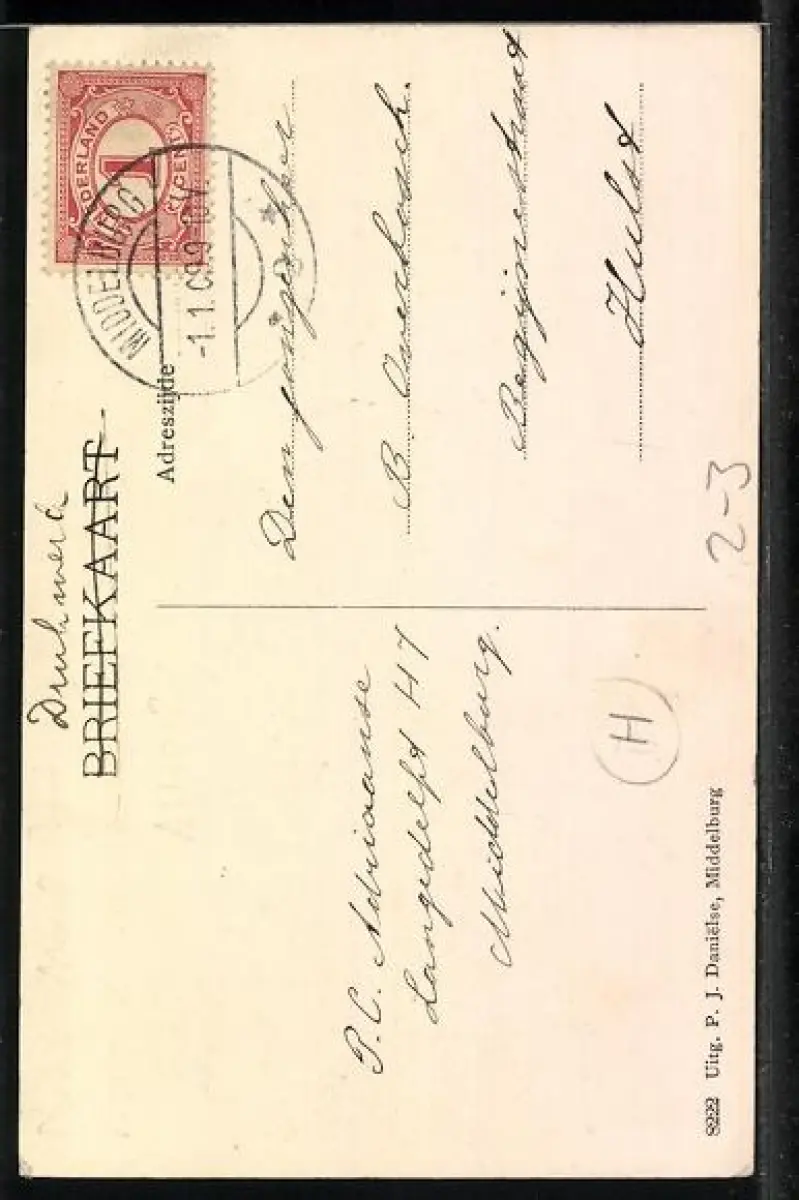 Drukwerk
BRIEFKAART
Adreszijde
NEDERLAND
1
CENT
MIDDELBURG
-1.1.09 9-
P.C. Adriaanse
Langedelft H7
Middelburg.
Den
B.
Begijnestraat
Hulst
H
2-3
8222 Uitg. P. J. Daniëlse, Middelburg